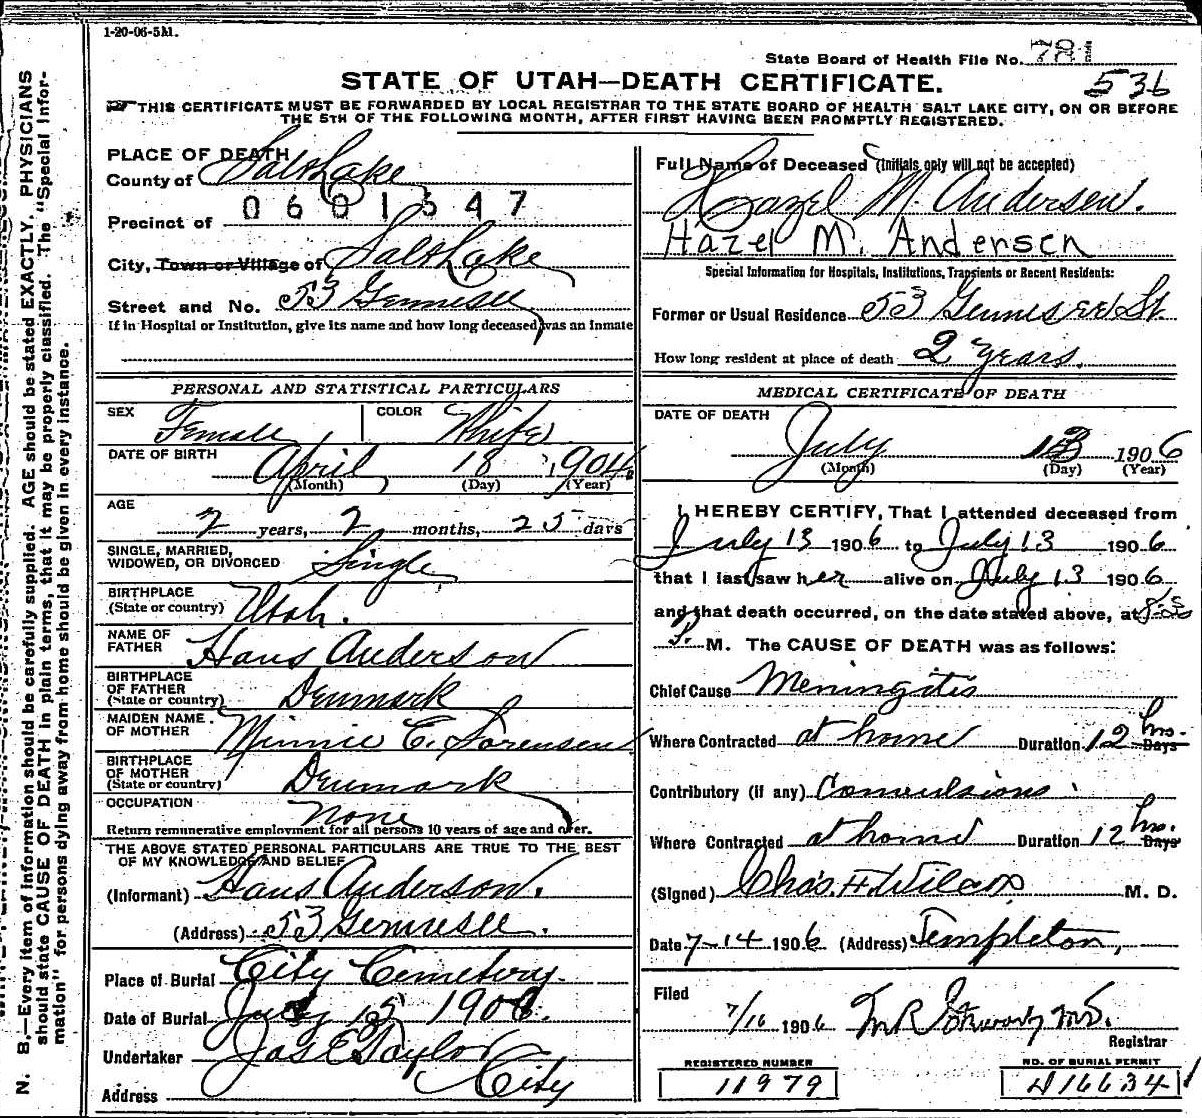 1-20-06-5M.
State Board of Health File No. 781
STATE OF UTAH—DEATH CERTIFICATE.
536
THIS CERTIFICATE MUST BE FORWARDED BY LOCAL REGISTRAR TO THE STATE BOARD OF HEALTH SALT LAKE CITY, ON OR BEFORE
THE 5TH OF THE FOLLOWING MONTH, AFTER FIRST HAVING BEEN PROMPTLY REGISTERED.
PLACE OF DEATH
County of Salt Lake
0601347
Precinct of
City, Town or Village of Salt Lake
Street and No. 53 Gennesee
If in Hospital or Institution, give its name and how long deceased was an inmate
PERSONAL AND STATISTICAL PARTICULARS
SEX Female COLOR White
DATE OF BIRTH April 18 1904
(Month) (Day) (Year)
AGE
2 years, 2 months, 25 days
SINGLE, MARRIED,
WIDOWED, OR DIVORCED Single
BIRTHPLACE
(State or country) Utah.
NAME OF
FATHER Hans Anderson
BIRTHPLACE
OF FATHER
(State or country) Denmark
MAIDEN NAME
OF MOTHER Minnie C. Sorensen
BIRTHPLACE
OF MOTHER
(State or country) Denmark
OCCUPATION None
Return remunerative employment for all persons 10 years of age and over.
THE ABOVE STATED PERSONAL PARTICULARS ARE TRUE TO THE BEST
OF MY KNOWLEDGE AND BELIEF
(Informant) Hans Anderson.
(Address) 53 Gennesee.
Place of Burial City Cemetery.
Date of Burial July 15 1906.
Undertaker Jas E Taylor
Address City
Full Name of Deceased (Initials only will not be accepted)
Hazel M. Andersen.
Hazel M. Andersen
Special Information for Hospitals, Institutions, Transients or Recent Residents:
Former or Usual Residence 53 Gennesee St
How long resident at place of death 2 years.
MEDICAL CERTIFICATE OF DEATH
DATE OF DEATH
July 13 1906
(Month) (Day) (Year)
I HEREBY CERTIFY, That I attended deceased from
July 13 1906 to July 13 1906
that I last saw her alive on July 13 1906
and that death occurred, on the date stated above, at
P. M. The CAUSE OF DEATH was as follows:
Chief Cause Meningitis
Where Contracted at home Duration 12 hrs. Days
Contributory (if any) Convulsions
Where Contracted at home Duration 12 hrs. Days
(Signed) Chas. F. Wilcox M. D.
Date 7-14 1906 (Address) Templeton,
Filed
7/16 1906
Registrar
REGISTERED NUMBER
11979
NO. OF BURIAL PERMIT
A16634
N. B.—Every item of information should be carefully supplied. AGE should be stated EXACTLY. PHYSICIANS
should state CAUSE OF DEATH in plain terms, that it may be properly classified. The "Special Infor-
mation" for persons dying away from home should be given in every instance.